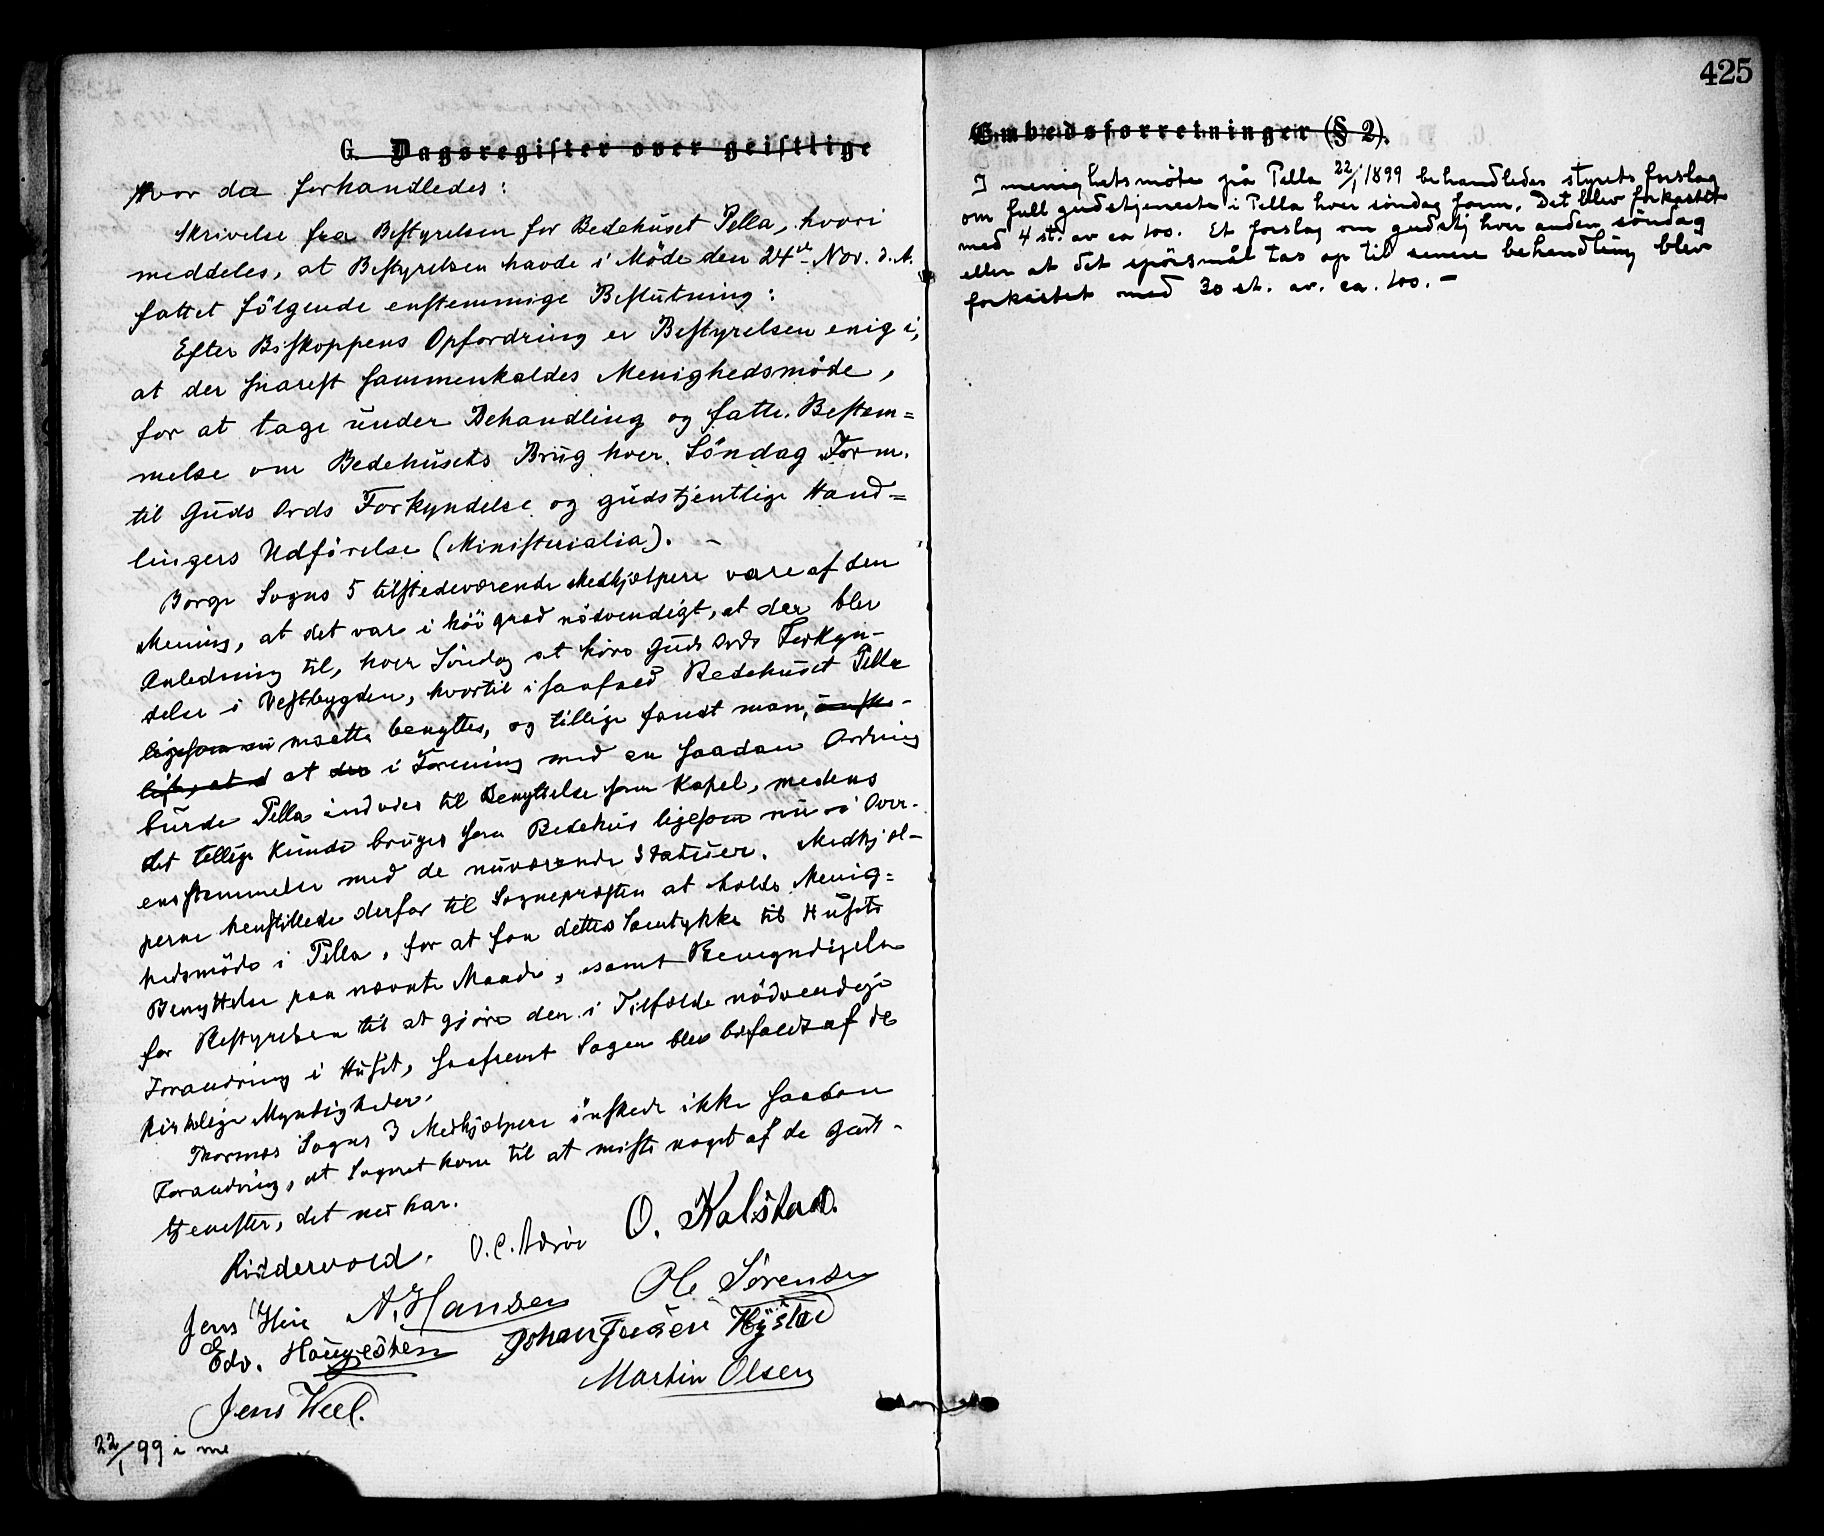 G. Dagsregister over geistlige
hvor da forhandledes:
Skrivelse fra Bestyrelsen for Bedehuset Pella, hvori
meddeles, at Bestyrelsen havde i Möde den 24de Nov. d. A.
fattet fölgende enstemmige Beslutning:
Efter Biskoppens Opfordring er Bestyrelsen enig i,
at der snarest sammenkaldes Menighedsmöde,
for at tage under Behandling og fatte Bestem=
melse om Bedehusets Brug hver Söndag Form.
til Guds Ords Forkyndelse og gudstjentlige Hand=
lingers Udförelse (Ministerialia). –
Borge Sogns 5 tilstedeværende Medhjælpere vare af den
Mening, at det var i höi grad nödvendigt, at der blev
Anledning til, hver Söndag at höre Guds Ords Forkyn-
delse i Vestbygden, hvortil i saafald Bedehuset Pella
ligesom nu maatte benyttes, og tillige fandt man, önske-
ligt, at d at der i Forening med en saadan Ordning
burde Pella indvies til Benyttelse som Kapel, medens
det tillige kunde bruges som Bedehus ligesom nu i Over-
ensstemmelse med de nuværende Statuer. Medhjæl-
perne henstillede derfor til Sognepræsten at holde Menig=
hedsmöde i Pella, for at faa dettes Samtykke til Husets
Benyttelse paa nævnte Maade, samt Bemyndigelse
for Bestyrelsen til at gjöre den i Tilfælde nödvendige
Forandring i Huset, saafremt Sagen blev bifaldt af de
kirkelige Myndigheder.
Thorsnæs Sogns 3 Medhjælpere önskede ikke saadan
Forandring, at Sognet kom til at miste noget af de Guds-
tjenester, det nu har.
Riddervold. O. C. O. Kalstad.
Jens A. Hansen Ole Sörensen
Edv. Haugesten Johan Hystad
Martin Olsen
Jens Heel.
22/1 99 i me
425
Embedsforretninger (§ 2).
I menighetsmöte på Pella 22/1 1899 behandledes styrets forslag
om full gudstjeneste i Pella hver söndag form. Det blev forkastet
med 4 st. av ca 100. Et forslag om gudstj hver anden söndag
eller at det spörsmål tas op til senere behandling blev
forkastet med 30 st. av. ca. 100. –